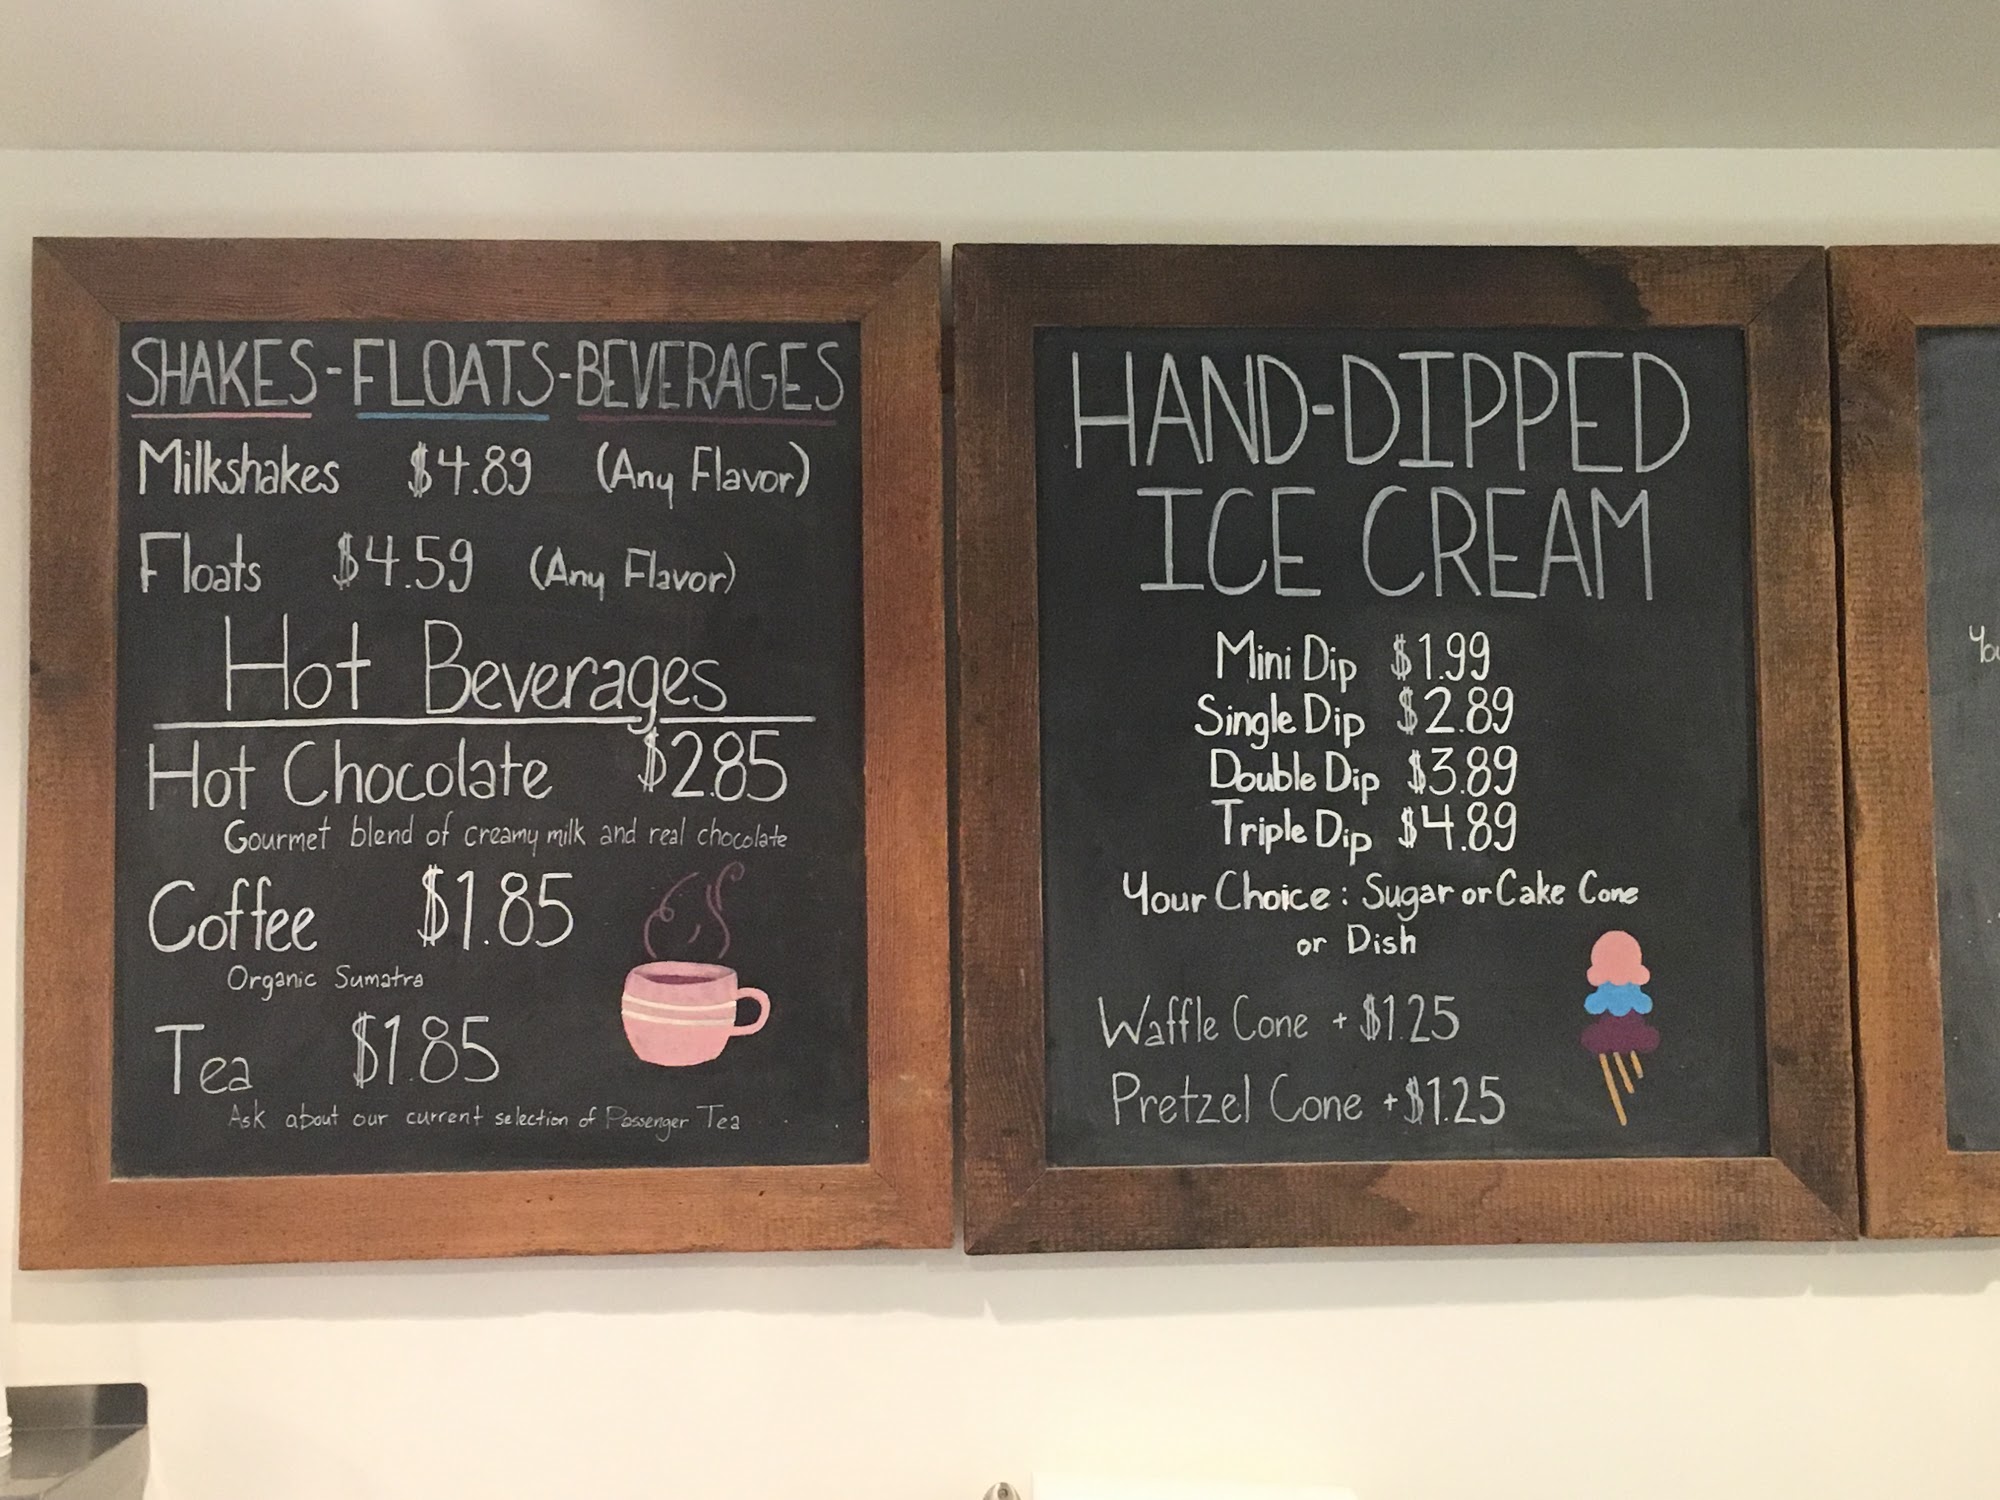 SHAKES-FLOATS-BEVERAGES
Milkshakes $4.89 (Any Flavor)
Floats $4.59 (Any Flavor)
Hot Beverages
Hot Chocolate $2.85
Gourmet blend of creamy milk and real chocolate
Coffee $1.85
Organic Sumatra
Tea $1.85
Ask about our current selection of Passenger Tea
HAND-DIPPED
ICE CREAM
Mini Dip $1.99
Single Dip $2.89
Double Dip $3.89
Triple Dip $4.89
Your Choice: Sugar or Cake Cone
or Dish
Waffle Cone + $1.25
Pretzel Cone + $1.25